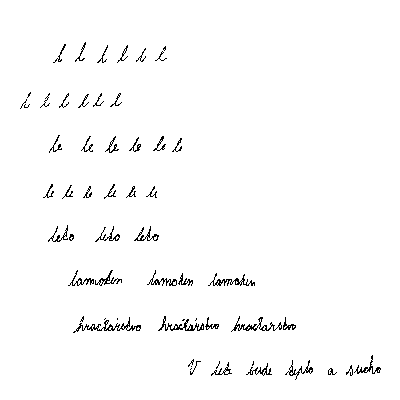 l l l l l l
l l l l l l
le le le le le le
le le le le le le
leto leto leto
hračkárstvo hračkárstvo hračkárstvo
V lete bude teplo a sucho